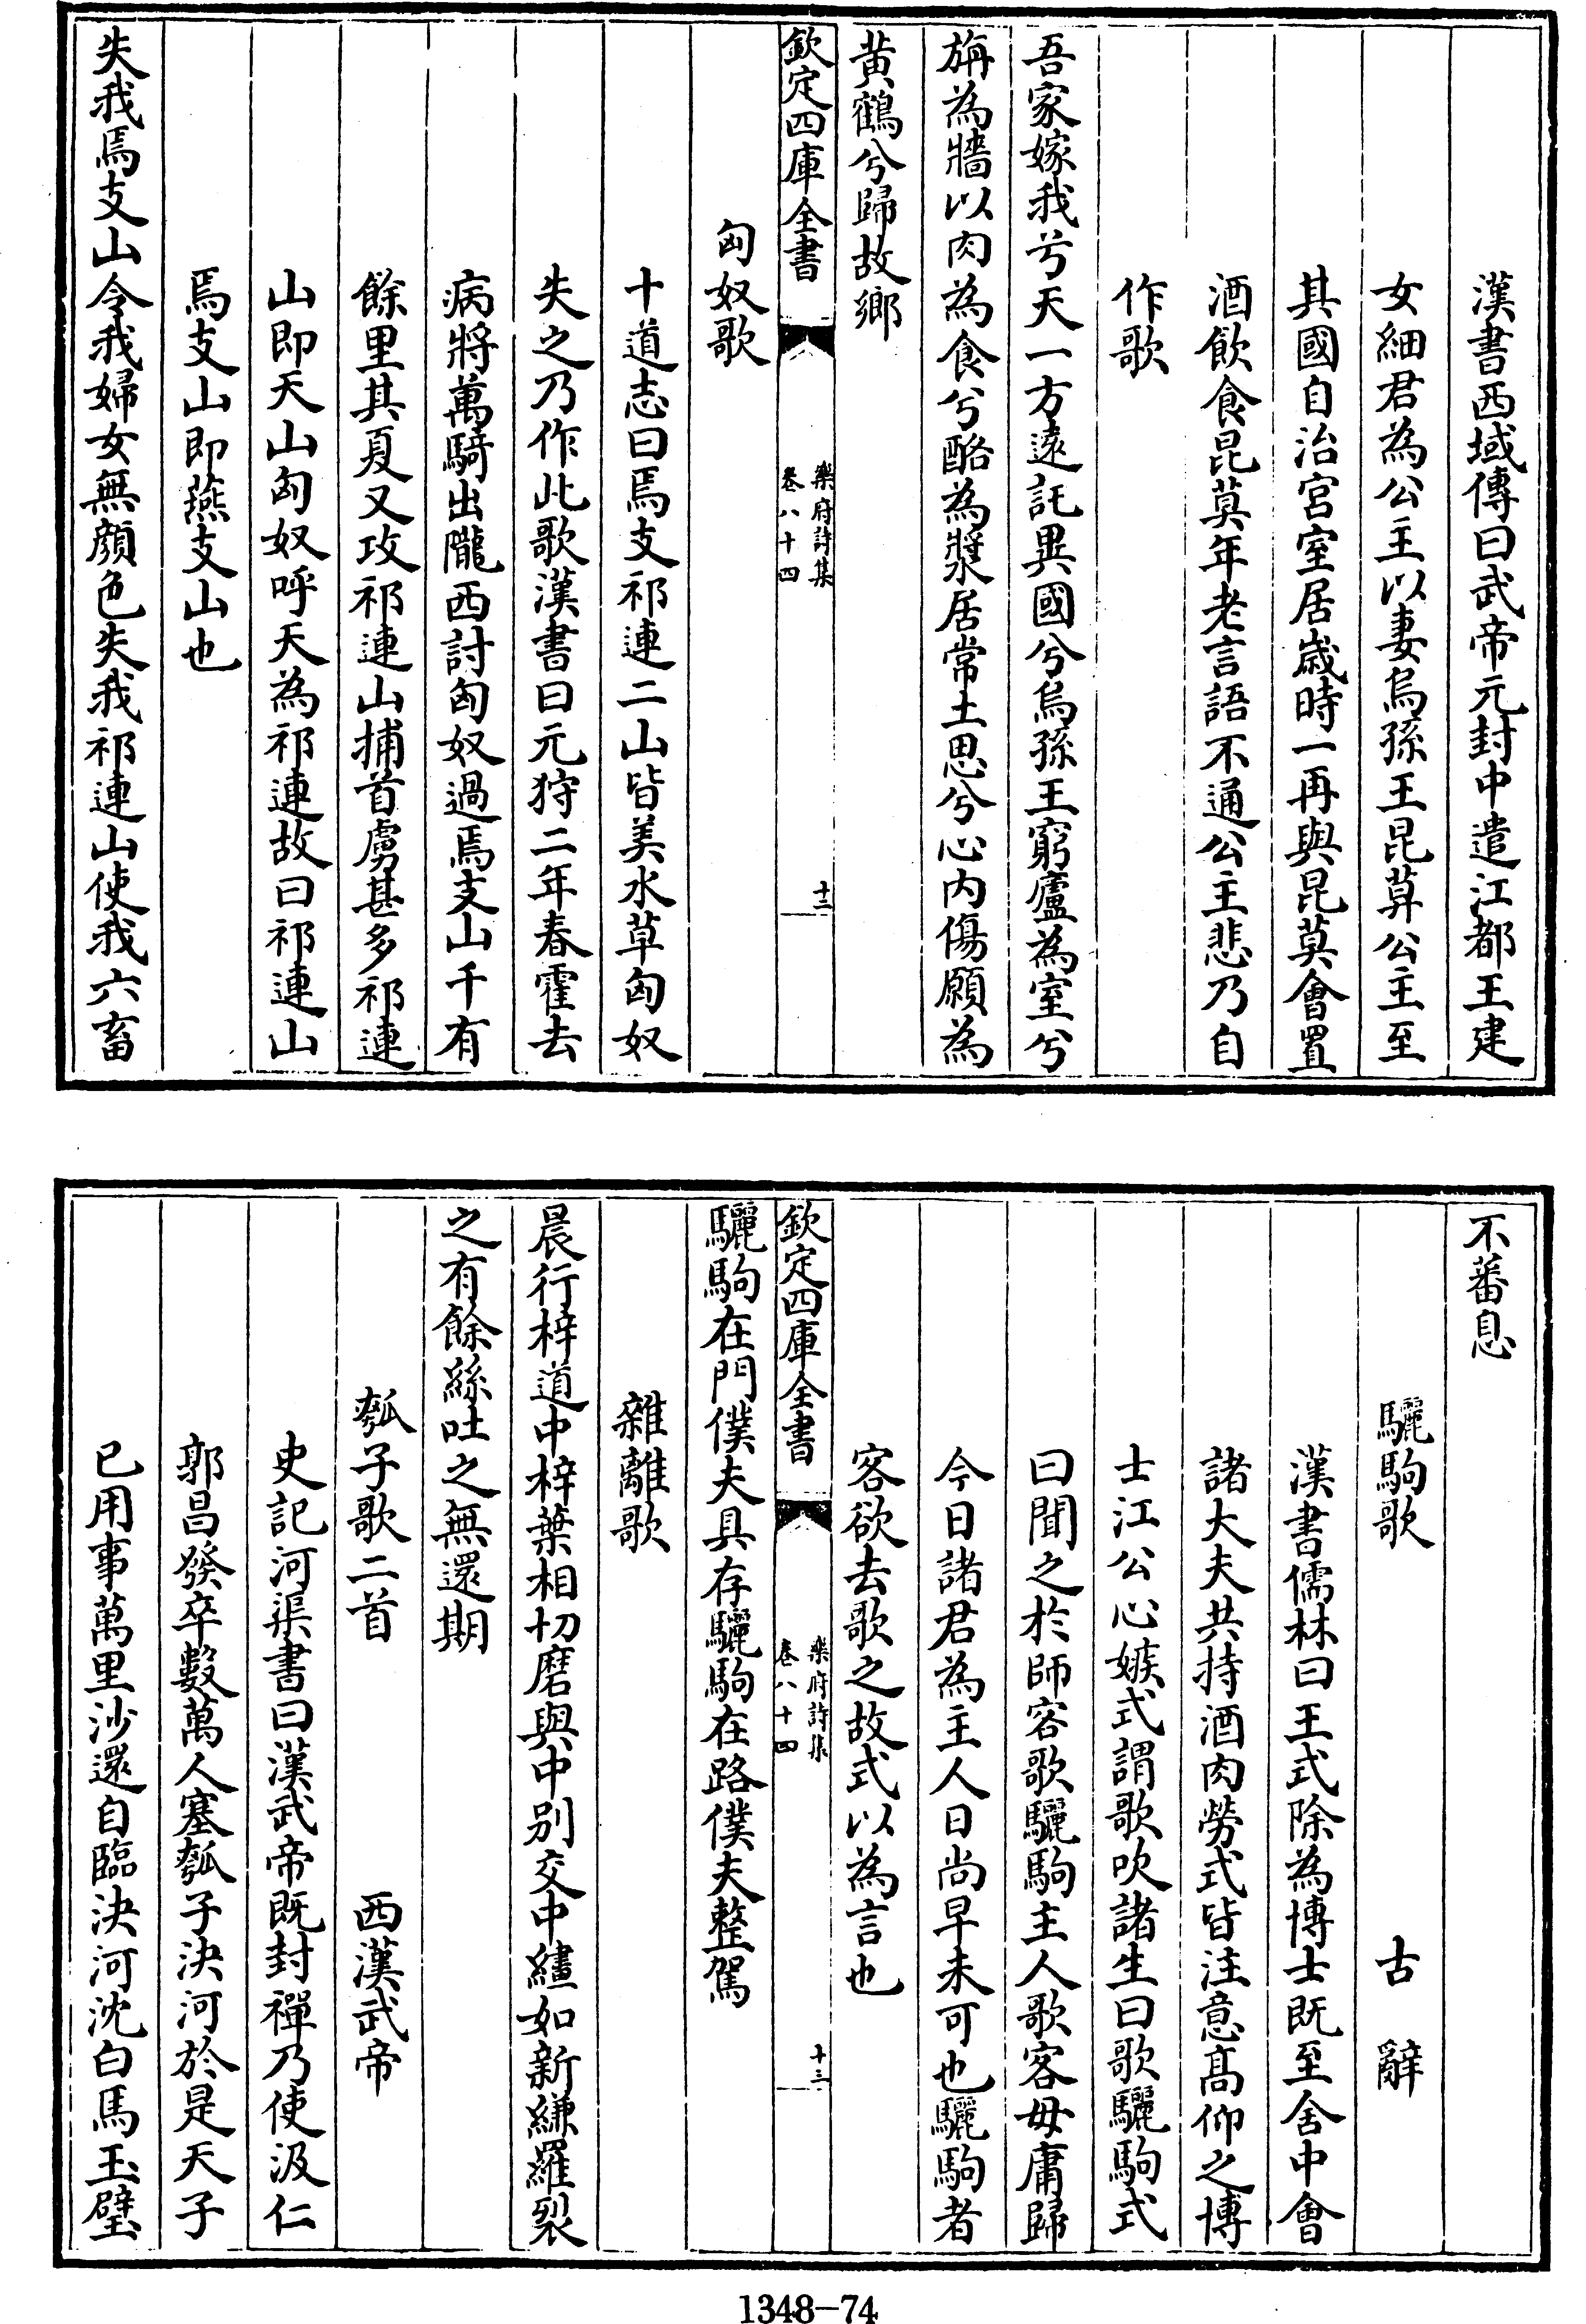 漢書西域傳曰武帝元封中遣江都王建
女細君為公主以妻烏孫王昆莫公主至
其國自治宮室居歲時一再與昆莫會置
酒飲食昆莫年老言語不通公主悲乃自
作歌
吾家嫁我兮天一方遠託異國兮烏孫王窮廬為室兮
旃為牆以肉為食兮酪為漿居常土思兮心內傷願為
黃鵠兮歸故鄉
欽定四庫全書
樂府詩集
卷八十四
十二
匈奴歌
十道志曰焉支祁連二山皆美水草匈奴
失之乃作此歌漢書曰元狩二年春霍去
病將萬騎出隴西討匈奴過焉支山千有
餘里其夏又攻祁連山捕首虜甚多祁連
山即天山匈奴呼天為祁連故曰祁連山
焉支山即燕支山也
失我焉支山令我婦女無顏色失我祁連山使我六畜
不蕃息
驪駒歌 古辭
漢書儒林曰王式除為博士既至舍中會
諸大夫共持酒肉勞式皆注意高仰之博
士江公心嫉式謂歌吹諸生曰歌驪駒式
曰聞之於師客歌驪駒主人歌客毋庸歸
今日諸君為主人日尚早未可也驪駒者
客欲去歌之故式以為言也
欽定四庫全書
樂府詩集
卷八十四
十三
驪駒在門僕夫具存驪駒在路僕夫整駕
雜離歌
晨行梓道中梓葉相切磨與中別交中繣如新縑羅裂
之有餘絲吐之無還期
瓠子歌二首 西漢武帝
史記河渠書曰漢武帝既封禪乃使汲仁
郭昌發卒數萬人塞瓠子決河於是天子
已用事萬里沙還自臨決河沈白馬玉璧
1348-74